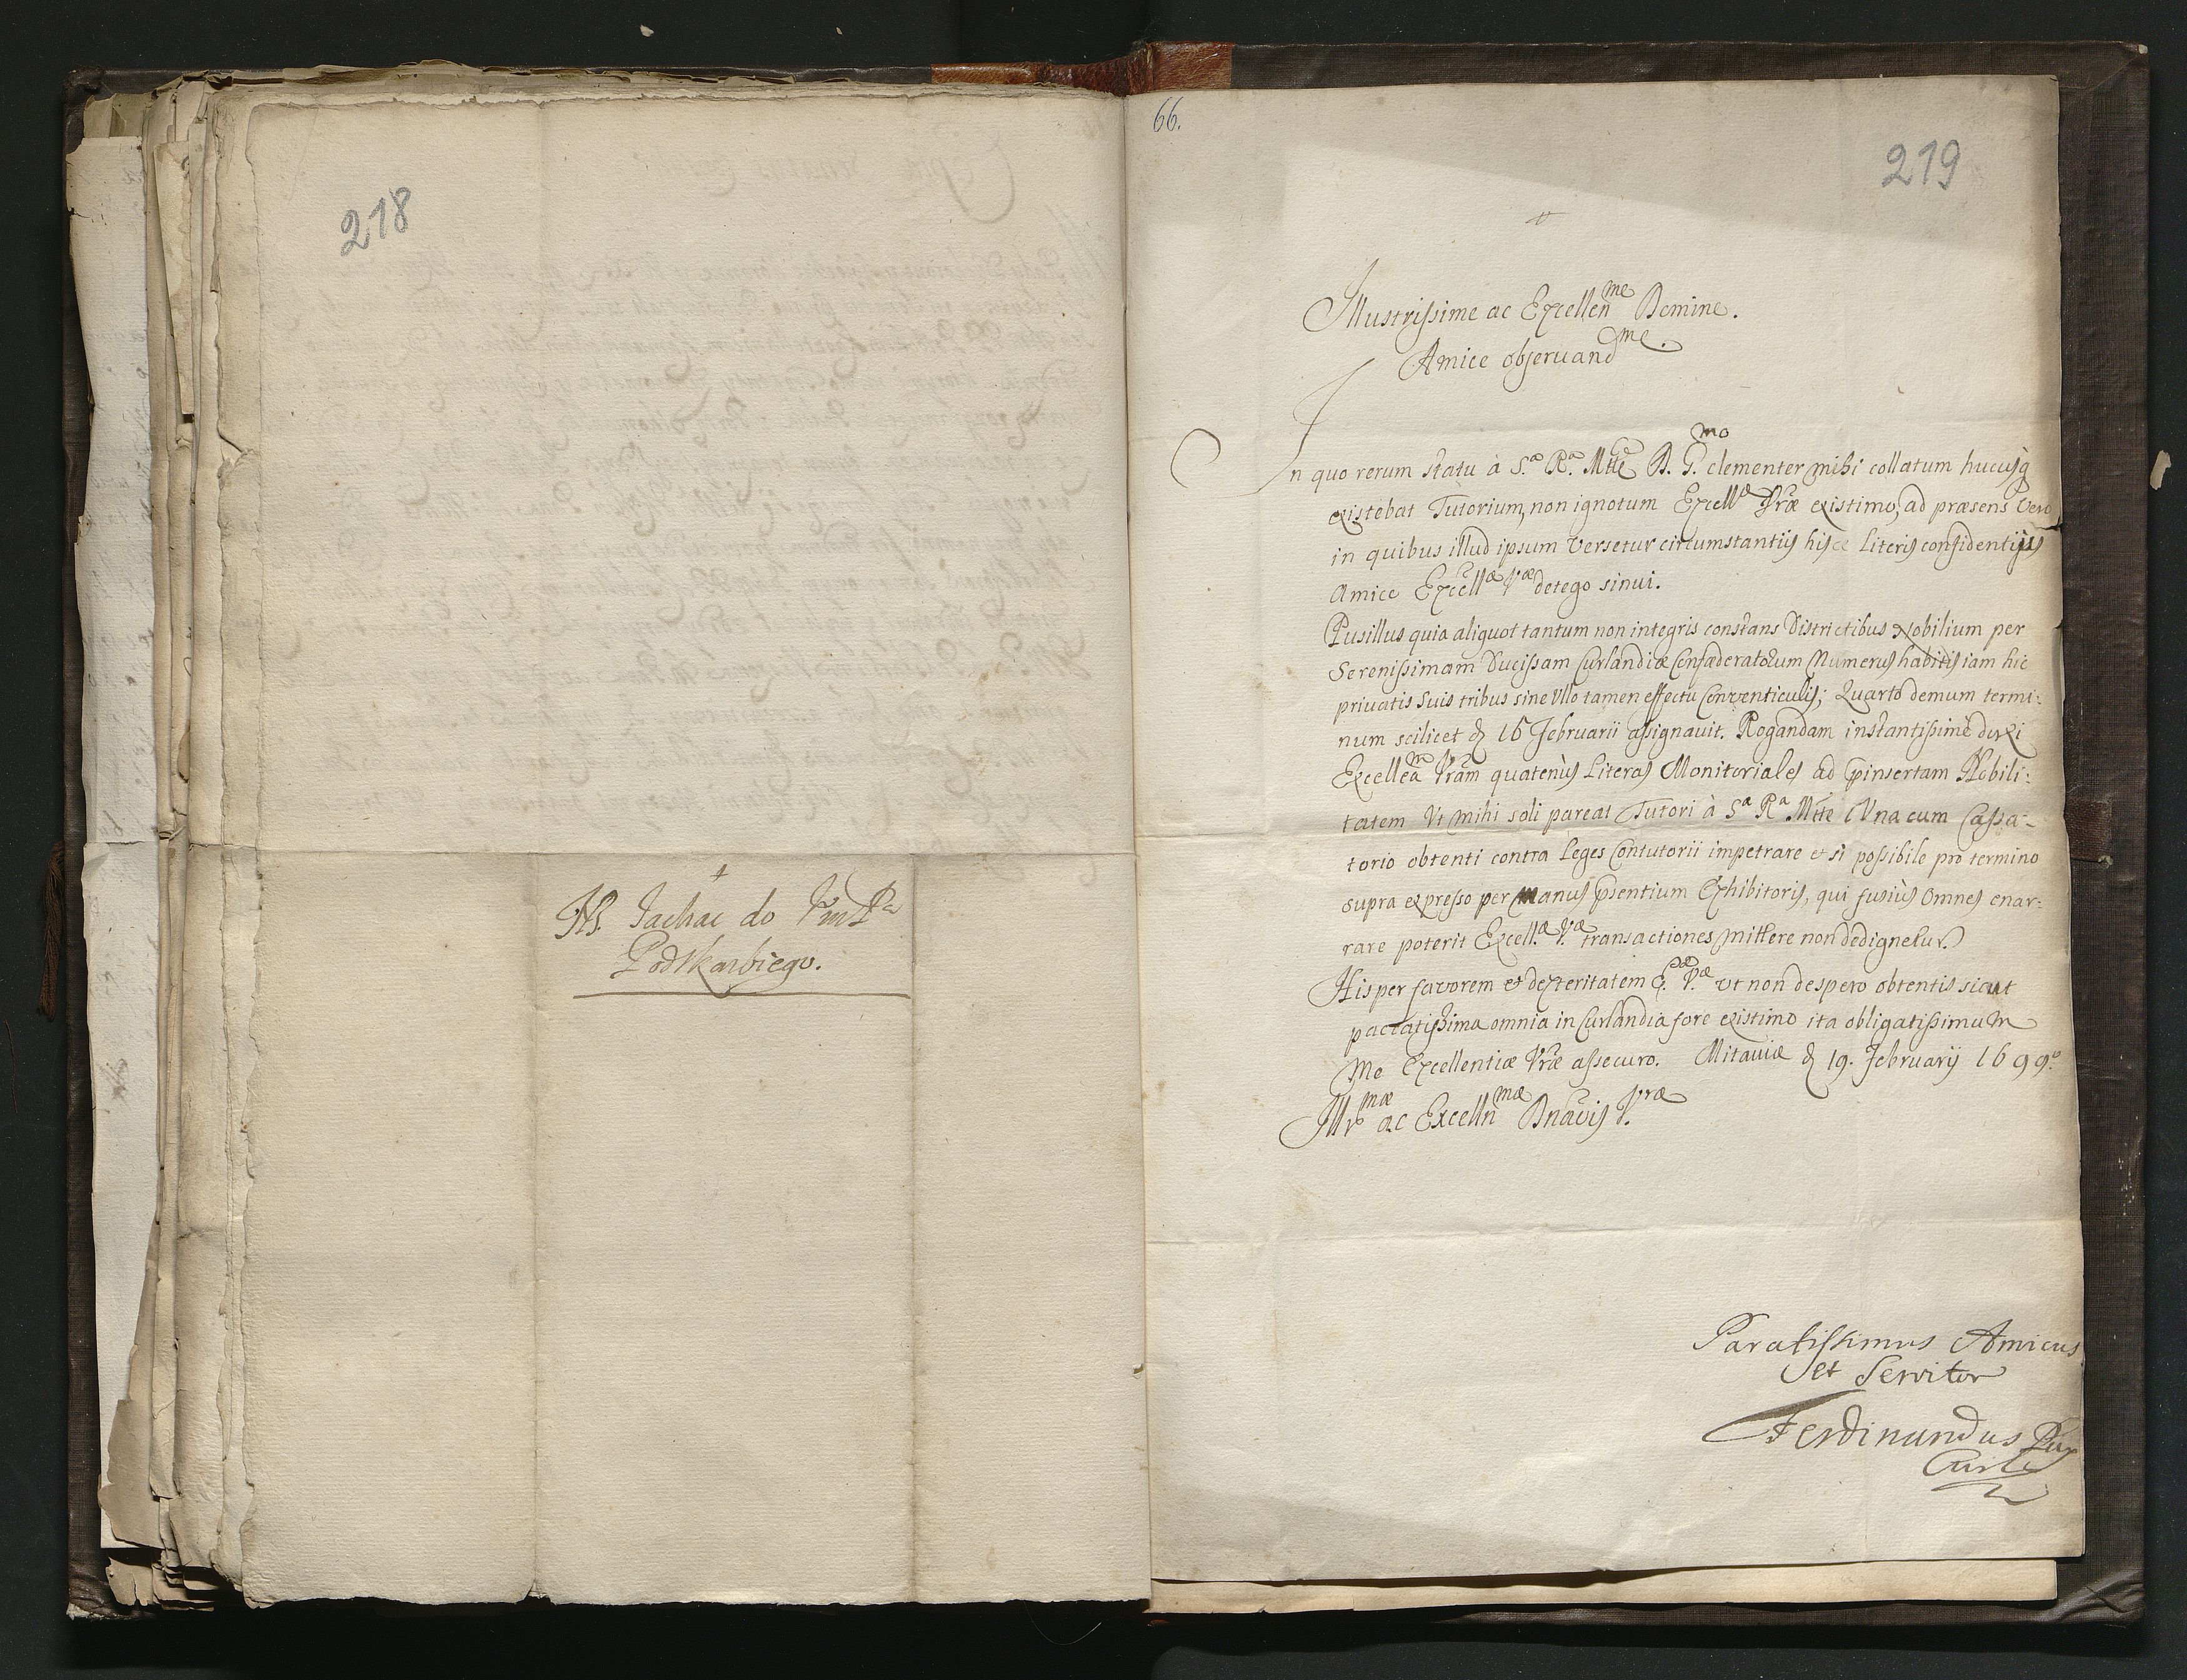 218
H S. Jachac do Jm P
Podskarbiego.
66.
219
Illustrissime ac Excellenme Domine.
Amice obseruandme.
In quo rerum statu à S.a R.a Mtte D. G. mo clementer mihi collatum hucusq
existebat Tutorium, non ignotum Excellæ Vræ existimo, ad præsens vero
in quibus illud ipsum versetur circumstantijs hisce Literis confidentijs
Amice Excellæ Væ detego sinui.
Pusillus quia aliquot tantum non integris constans Districtibus Nobilium per
Serenissimam Ducissam Curlandiæ Confæderatorum Numerus habitis iam hic
priuatis suis tribus sine Vllo tamen effectu Conventiculis; Quarto demum termi:
num scilicet d 16 Februarii assignauit. Rogandam instantissimè duxi
Excelleam Vram quatenùs Literas Monitoriales ad pinsertam Nobili:
tatem Vt mihi soli pareat Tutori à Sa Ra Mtte Vna cum Cassa-
torio obtenti contra Leges Contutorii impetrare et si possibile pro termino
supra expresso per manus psentium Exhibitoris, qui fusiùs Omnes enar:
rare poterit Excell.æ V.æ transactiones mittere non dedignetur.
His per favorem et dexteritatem E.æ V.æ vt non despero obtentis sicut
pacatissima omnia in Curlandia fore existimo ita obligatissimum
Me Excellentiæ Vræ assecuro. Mitaviæ d 19. Februarij 1699.o
Illrmæ ac Excellnmæ Dnaõis Vræ
Paratissimus Amicus
et Servitor
Ferdinandus Dux
Curl